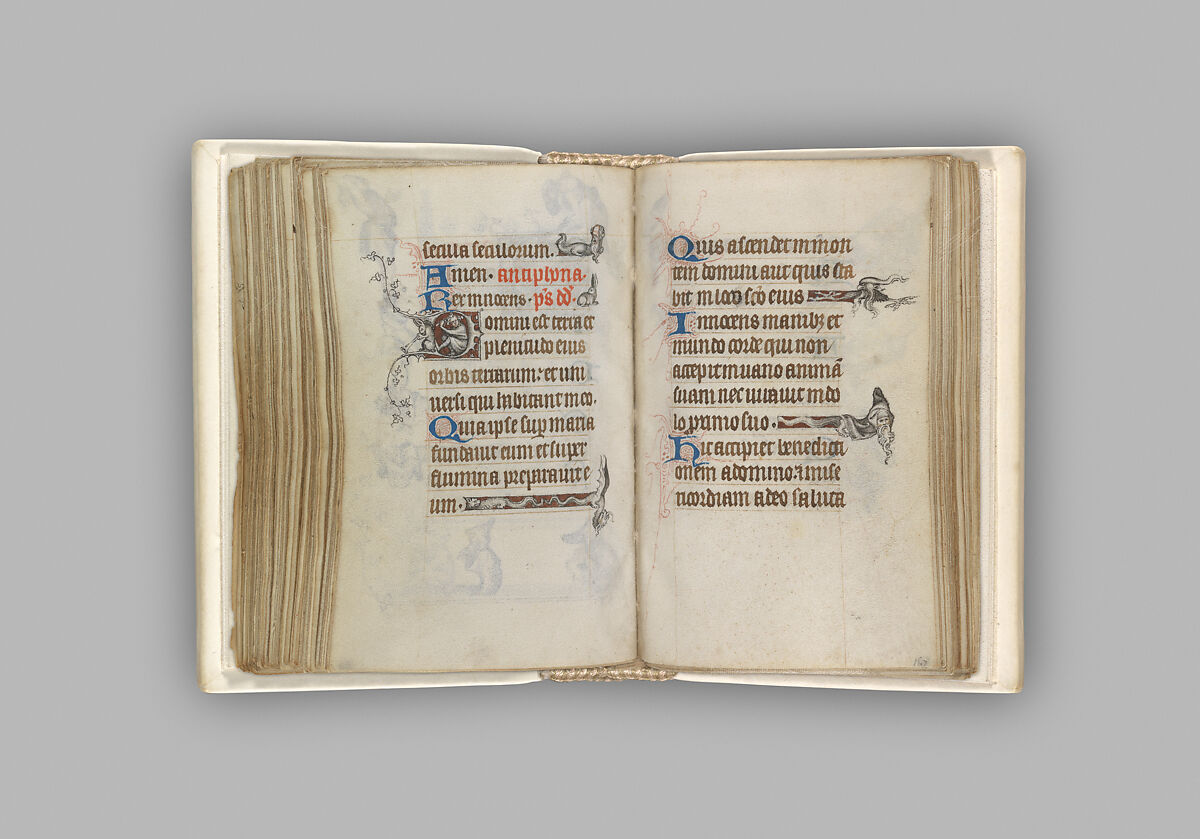 secula seculorum.
Amen. antiphona.
Rex innocens. p̄s dd̄.
Domini est terra et
plenitudo eius
orbis terrarum: et uni
uersi qui habitant in eo.
Quia ipse sup maria
fundauit eum et super
flumina preparauit e
um.
Quis ascendet in mon
tem domini aut quis sta
bit in loco sc̄o eius
Innocens manibꝫ et
mundo corde qui non
accepit in uano animā
suam nec iurauit in do
lo proximo suo.
Hic accipiet benedicti
onem a domino: ⁊ mise
ricordiam a deo saluta